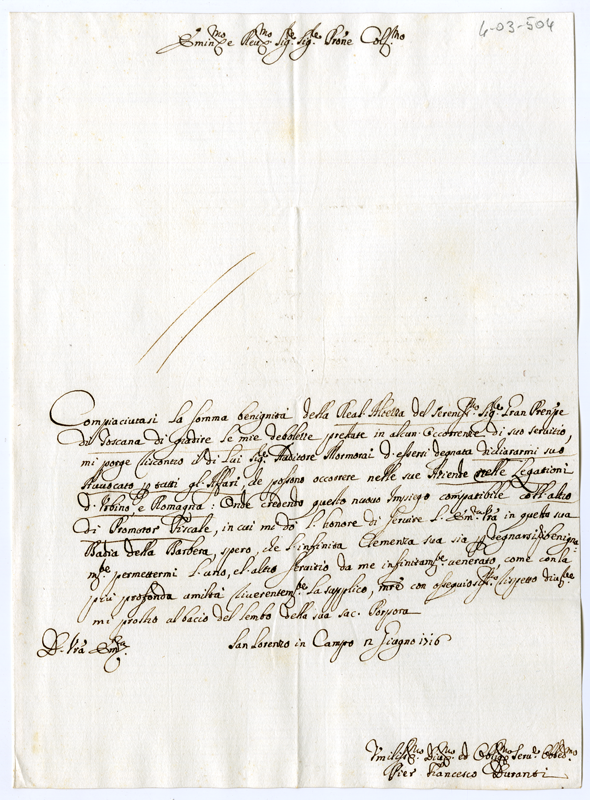 4-03-504
Emin.mo e Rev.mo Sig.re Sig.re Prone Col.mo
Compiaciutasi la somma benignità della Real Altezza del Sereniss.mo Sig.re Gran Prenpe
di Toscana di gradire le mie debolezze prestate in alcun occorrente di suo servizio,
mi porge riscontro il di lui Sig.re Auditore Mormorai d'essersi degnata dichiararmi suo
Avvocato in tutti gl'Affari, che possono occorrere nelle sue Aziende nelle Legazioni
d'Urbino, e Romagna: Onde credendo questo nuovo Impiego compatibile coll'altro
di Promotor Fiscale, in cui mi dò l'honore di servire l'Em.za Vra in questa sua
Badia della Barbera, spero, che l'infinita Clemenza sua sia p degnarsi benigna:
m.te permettermi l'uno, e l'altro servizio da me infinitam.te venerato, come con la
più profonda umiltà riverentem.te la supplico, mre con ossequiosis.mo rispetto
mi prostro al bacio del lembo della sua sac. Porpora
D. Vra Em.za
San Lorenzo in Campo 12 Giugno 1716
Umiliss.mo Div.mo ed Oblig.mo Serv.e Osseq.mo
Pier Francesco Duranti